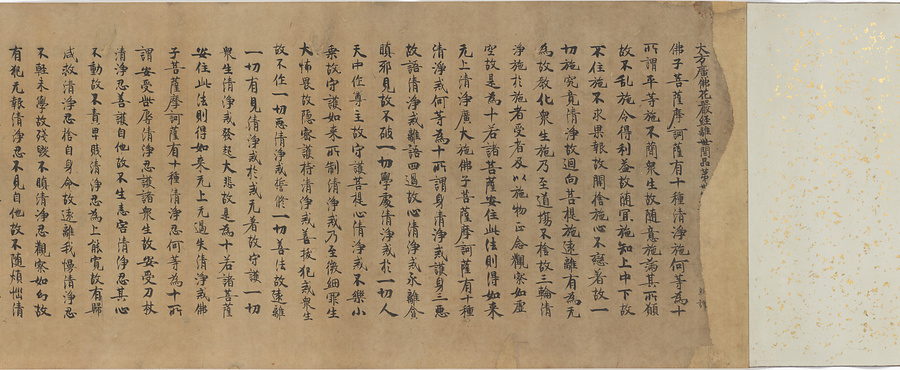 大方廣佛花嚴經離世間品第
佛子菩薩摩訶薩有十種清淨施何等為十
所謂平等施不簡衆生故隨意施滿其所願
故不乱施令得利益故隨宜施知上中下故
不住施不求果報故開捨施心不戀著故一
切施究竟清淨故迴向菩提施遠離有為无
為故教化衆生施乃至道場不捨故三輪清
淨施於施者受者及以施物正念觀察如虛
空故是為十若諸菩薩安住此法則得如來
无上清淨廣大施佛子菩薩摩訶薩有十種
清淨戒何等為十所謂身清淨戒護身三惡
故語清淨戒離語四過故心清淨戒永離貪
瞋邪見故不破一切學處清淨戒於一切人
天中作尊主故守護菩提心清淨戒不樂小
乘故守護如來所制清淨戒乃至微細罪生
大怖畏故隱密護持清淨戒善拔犯戒衆生
故不作一切惡清淨戒誓修一切善法故遠離
一切有見清淨戒於戒无著故守護一切
衆生清淨戒發起大悲故是為十若諸菩薩
安住此法則得如來无上无過失清淨戒佛
子菩薩摩訶薩有十種清淨忍何等為十所
謂安受呰辱清淨忍護諸衆生故安受刀杖
清淨忍善護自他故不生恚害清淨忍其心
不動故不責卑賤清淨忍為上能寬故有歸
咸救清淨忍捨自身命故遠離我慢清淨忍
不輕未學故殘毀不瞋清淨忍觀察如幻故
有犯无報清淨忍不見自他故不隨煩惱清